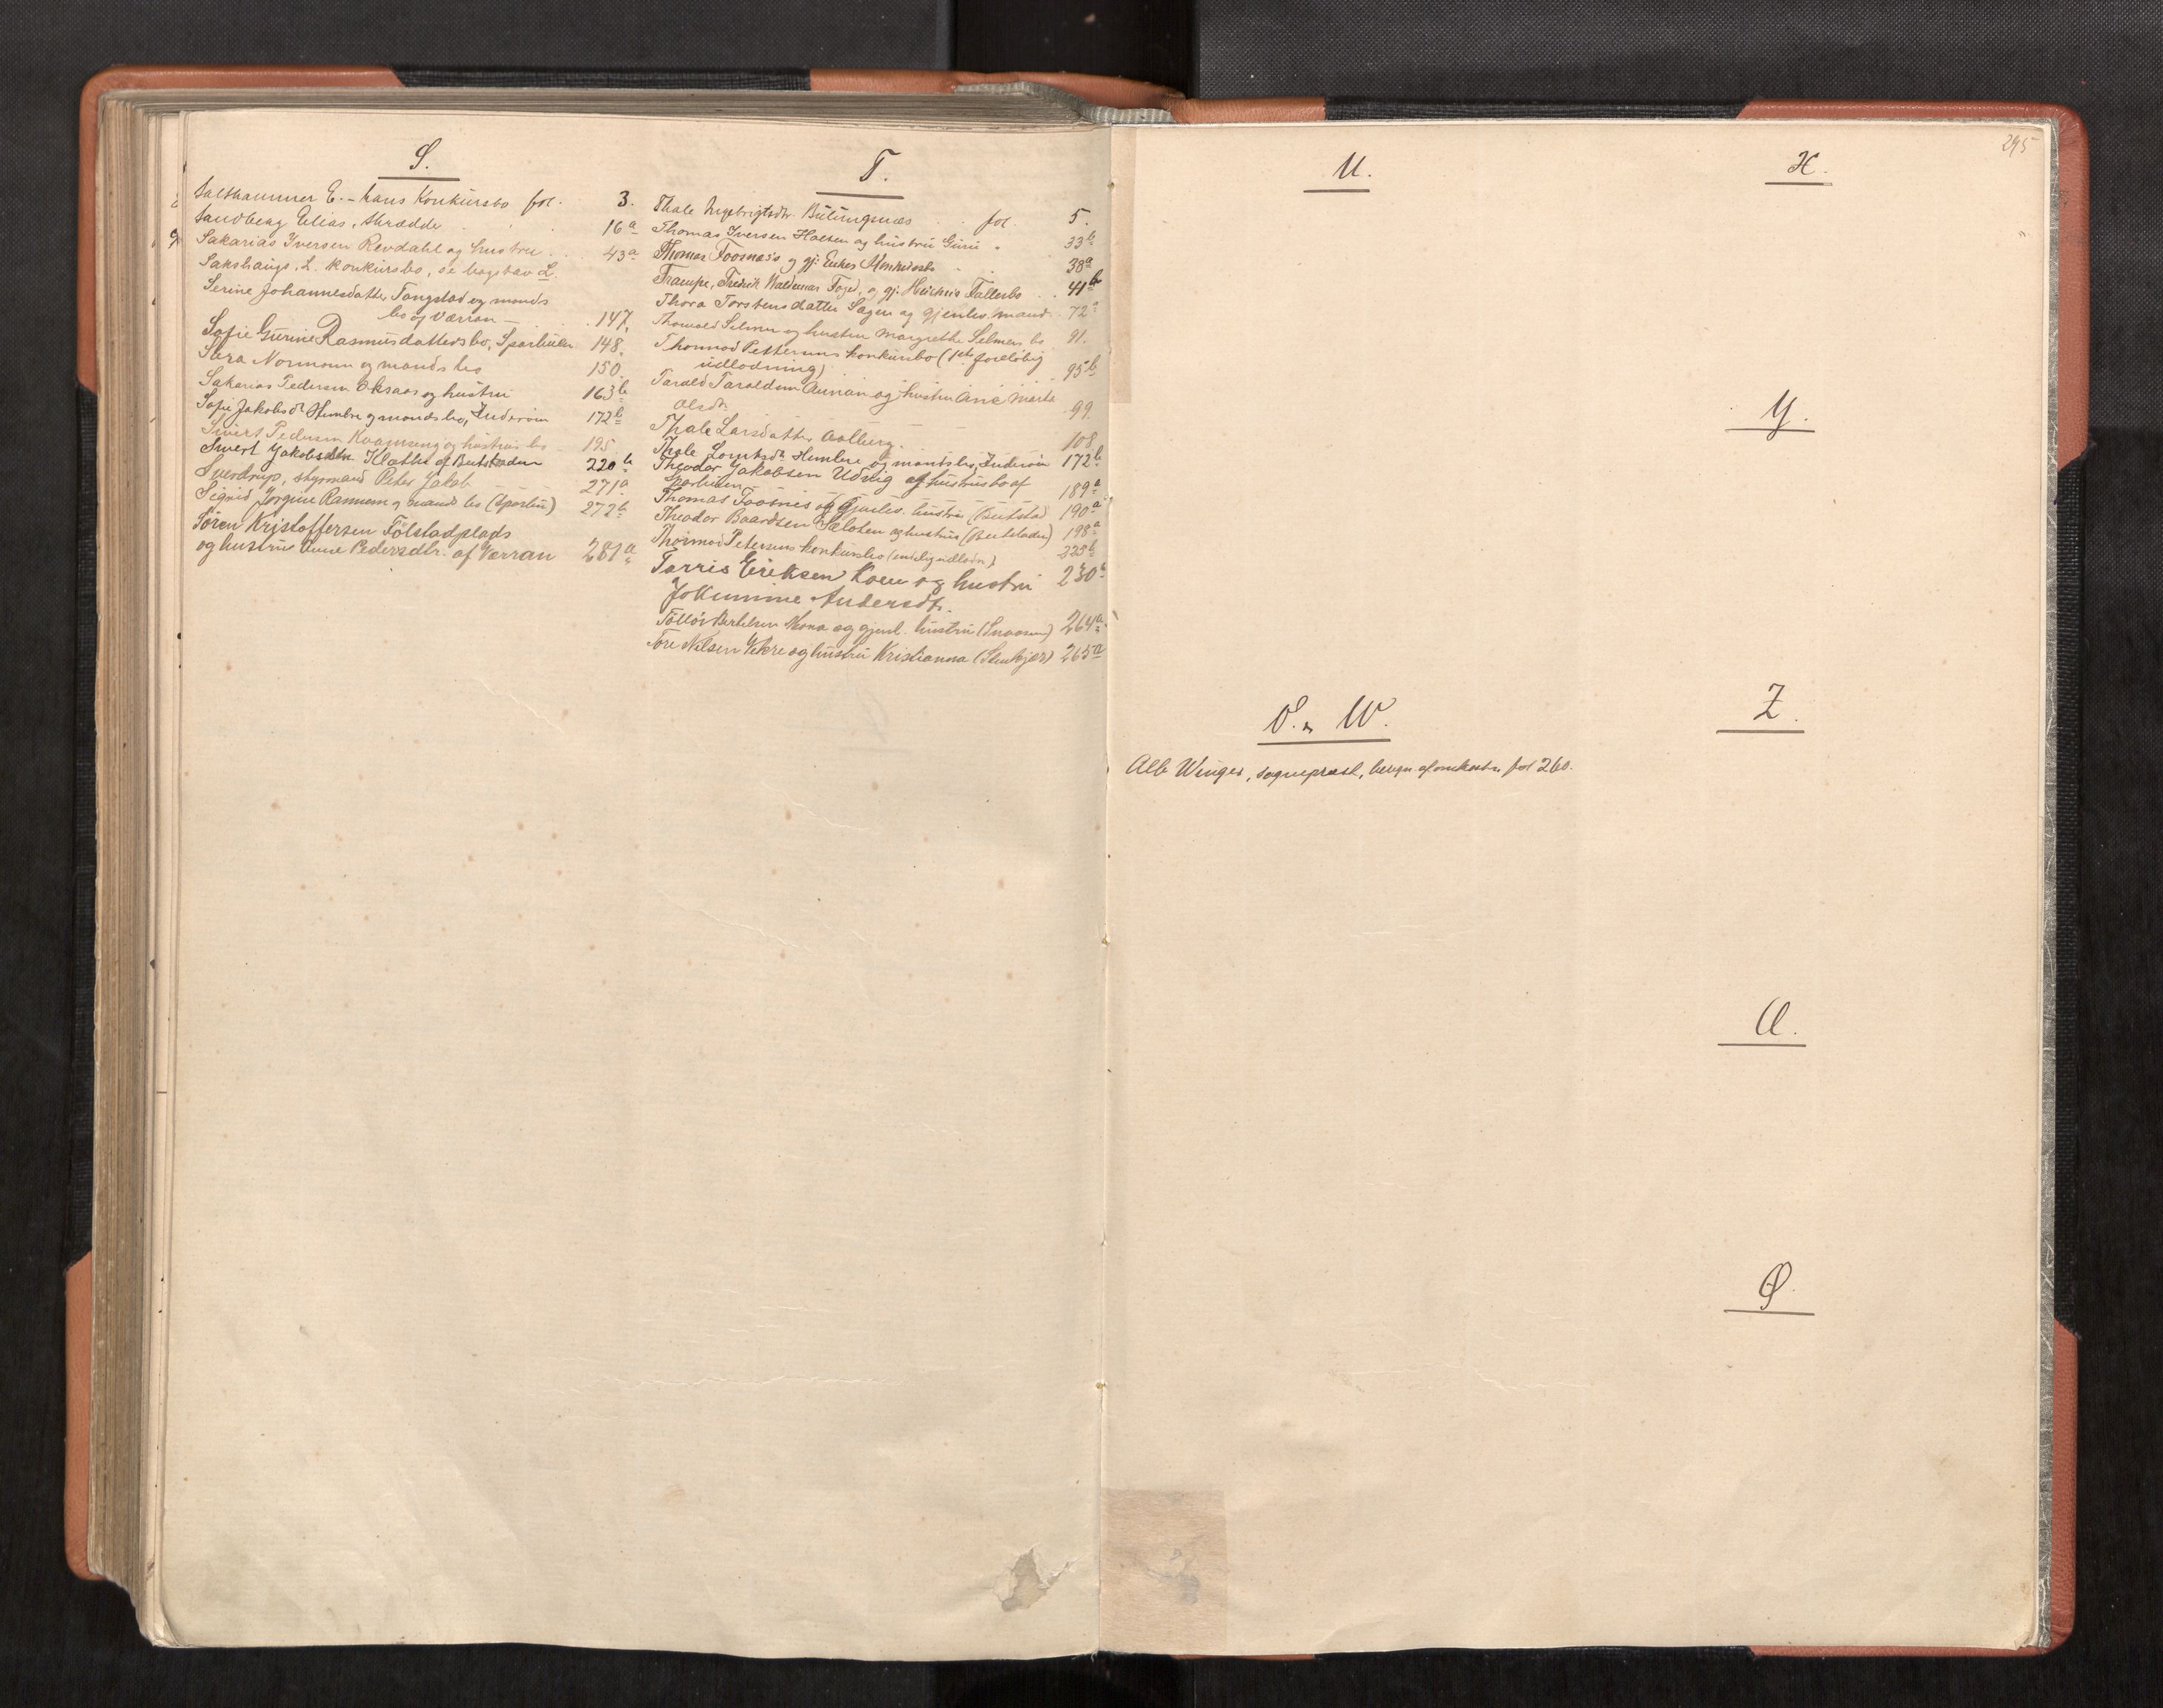 S.
Salthammer E. – hans Konkursbo fol. 3.
Sandberg Elias, skrædder 16a
Sakarias Iversen Revdahl og hustru 43a
Sakshaugs, L. konkursbo, se bogstav L.
Serine Johannesdatter Tangstad og mands
bo af Værran – 147.
Sofie Gurine Rasmusdatters bo, Sparbuen 148.
Sara Normann og mands bo 150.
Sakarias Pedersen Oksaas og hustru 163b
Sofie Jakobsdr Hembre og mands bo, Inderøen 172b
Sivert Pedersen Kvamseng og hustrus bo 195.
Sivert Jakobsen Klætte af Beitstaden 220b
Sverdrup, styrmand Peter Jakob 271a
Sigrid Jørgine Rasmussen og mands bo (Sparbu) 272b
Sören Kristoffersen Fölstadplads
og hustru Anne Pedersdtr. af Værran 281a
T.
Thale Ingebrigtsdtr. Bülingnæs fol. 5.
Thomas Iversen Holten og hustru Guru 33b
Thomas Foosnæs's og gj. Enkes Konkursbo 38a
Trampe, Fredrik Waldemar Foged, og gj. Hustrus Fallesbo 41b
Thora Torstensdatter Sagen og gjenlev. mand 72a
Thorvald Selmer og hustru Margrethe Selmers bo 91.
Thormod Pettersens konkursbo (1ste foreløbig
udlodning) 95b
Tarald Taraldsen Aunan og hustru Ane Marta
Olsdtr. 99.
Thale Larsdatter Aalberg. 108
Thale Lorntsdr Hembre og mands bo, Inderøen 172b
Theodor Jakobsen Udvig og hustrus bo af
Sparbuen 189a
Thomas Foosnæs og gjenlev. hustru (Beitstad 190a
Theodor Baardsen Sæloten og hustrus (Beitstaden) 198a
Thormod Petersens konkursbo (endelig udlodn.) 225b
Tarris Eriksen Koen og hustru 230a
Jokumine Andersdtr.
Tollev Bertelsen Mona og gjenl. hustru (Snaasen) 264a
Tore Nilsen Vekre og hustru Kristianna (Stenkjær) 265a
295
U.
V. & W.
Alb Winges, sogneprest, bergn. af omkostn. fol 260.
X.
Y.
Z.
Å.
Ø.